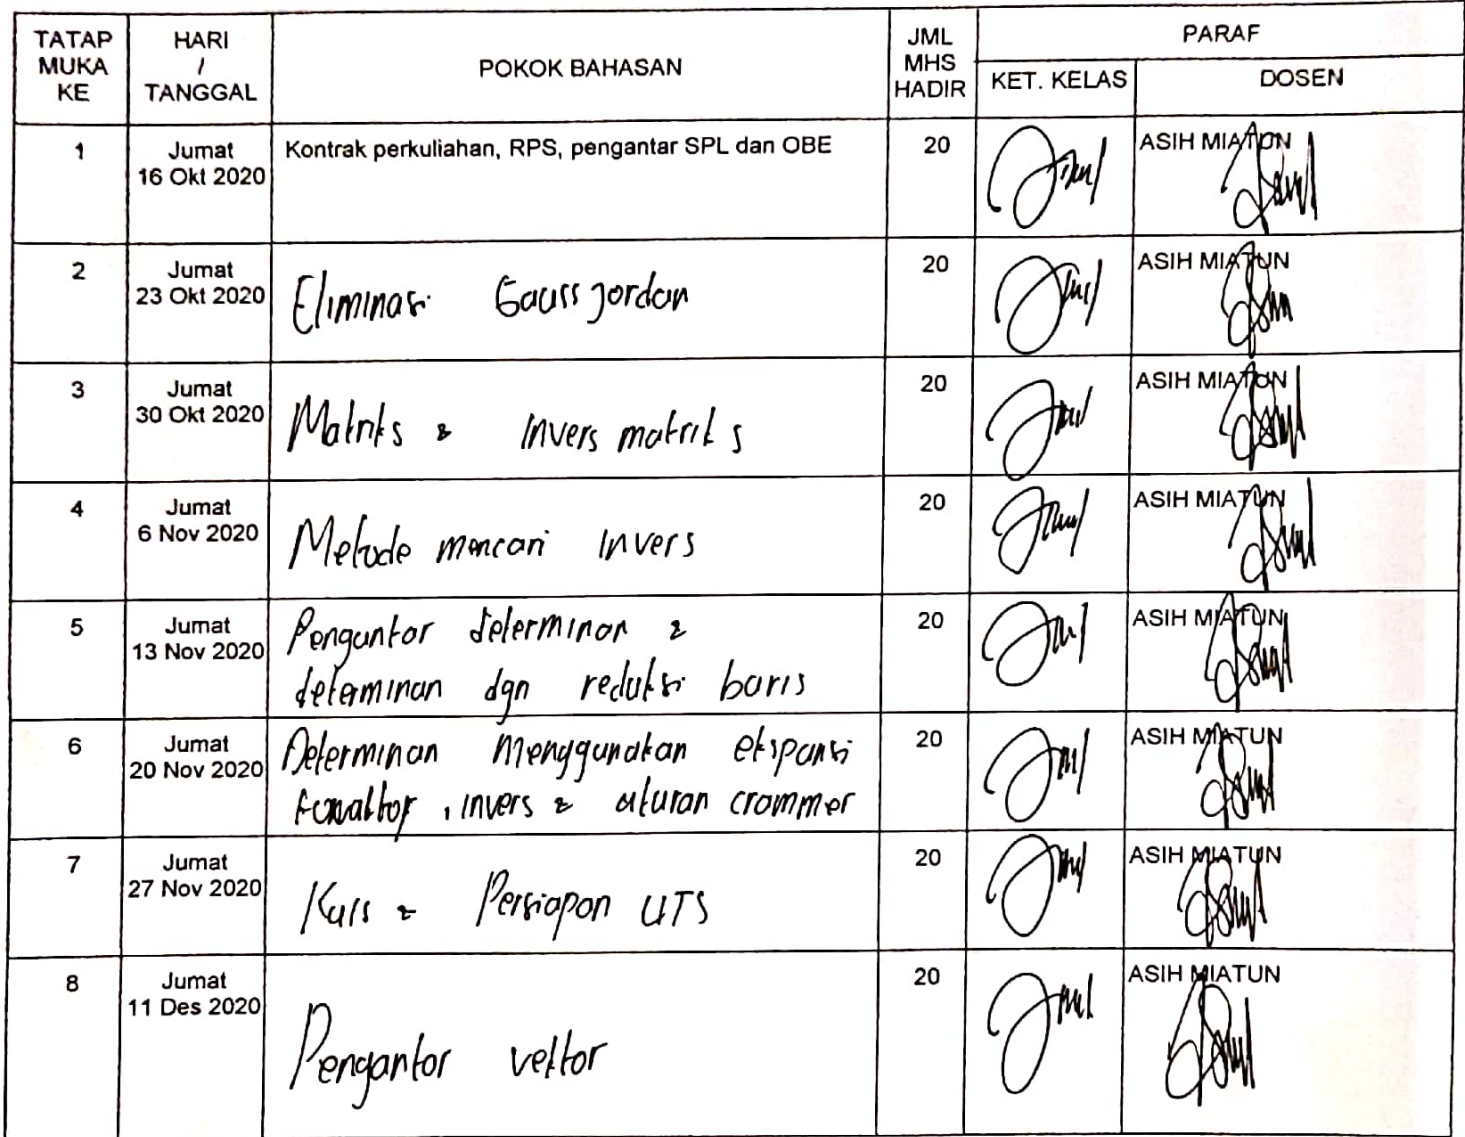 TATAP MUKA KE
HARI / TANGGAL
POKOK BAHASAN
JML MHS HADIR
PARAF
KET. KELAS
DOSEN
1
Jumat
16 Okt 2020
Kontrak perkuliahan, RPS, pengantar SPL dan OBE
20
ASIH MIATUN
2
Jumat
23 Okt 2020
Eliminasi Gauss Jordan
20
ASIH MIATUN
3
Jumat
30 Okt 2020
Matriks & Invers matriks
20
ASIH MIATUN
4
Jumat
6 Nov 2020
Metode mencari Invers
20
ASIH MIATUN
5
Jumat
13 Nov 2020
Pengantar determinan &
determinan dgn reduksi baris
20
ASIH MIATUN
6
Jumat
20 Nov 2020
Determinan Menggunakan ekspansi
, invers & aturan crammer
20
ASIH MIATUN
7
Jumat
27 Nov 2020
Kuis & Persiapan UTS
20
ASIH MIATUN
8
Jumat
11 Des 2020
Pengantar vektor
20
ASIH MIATUN